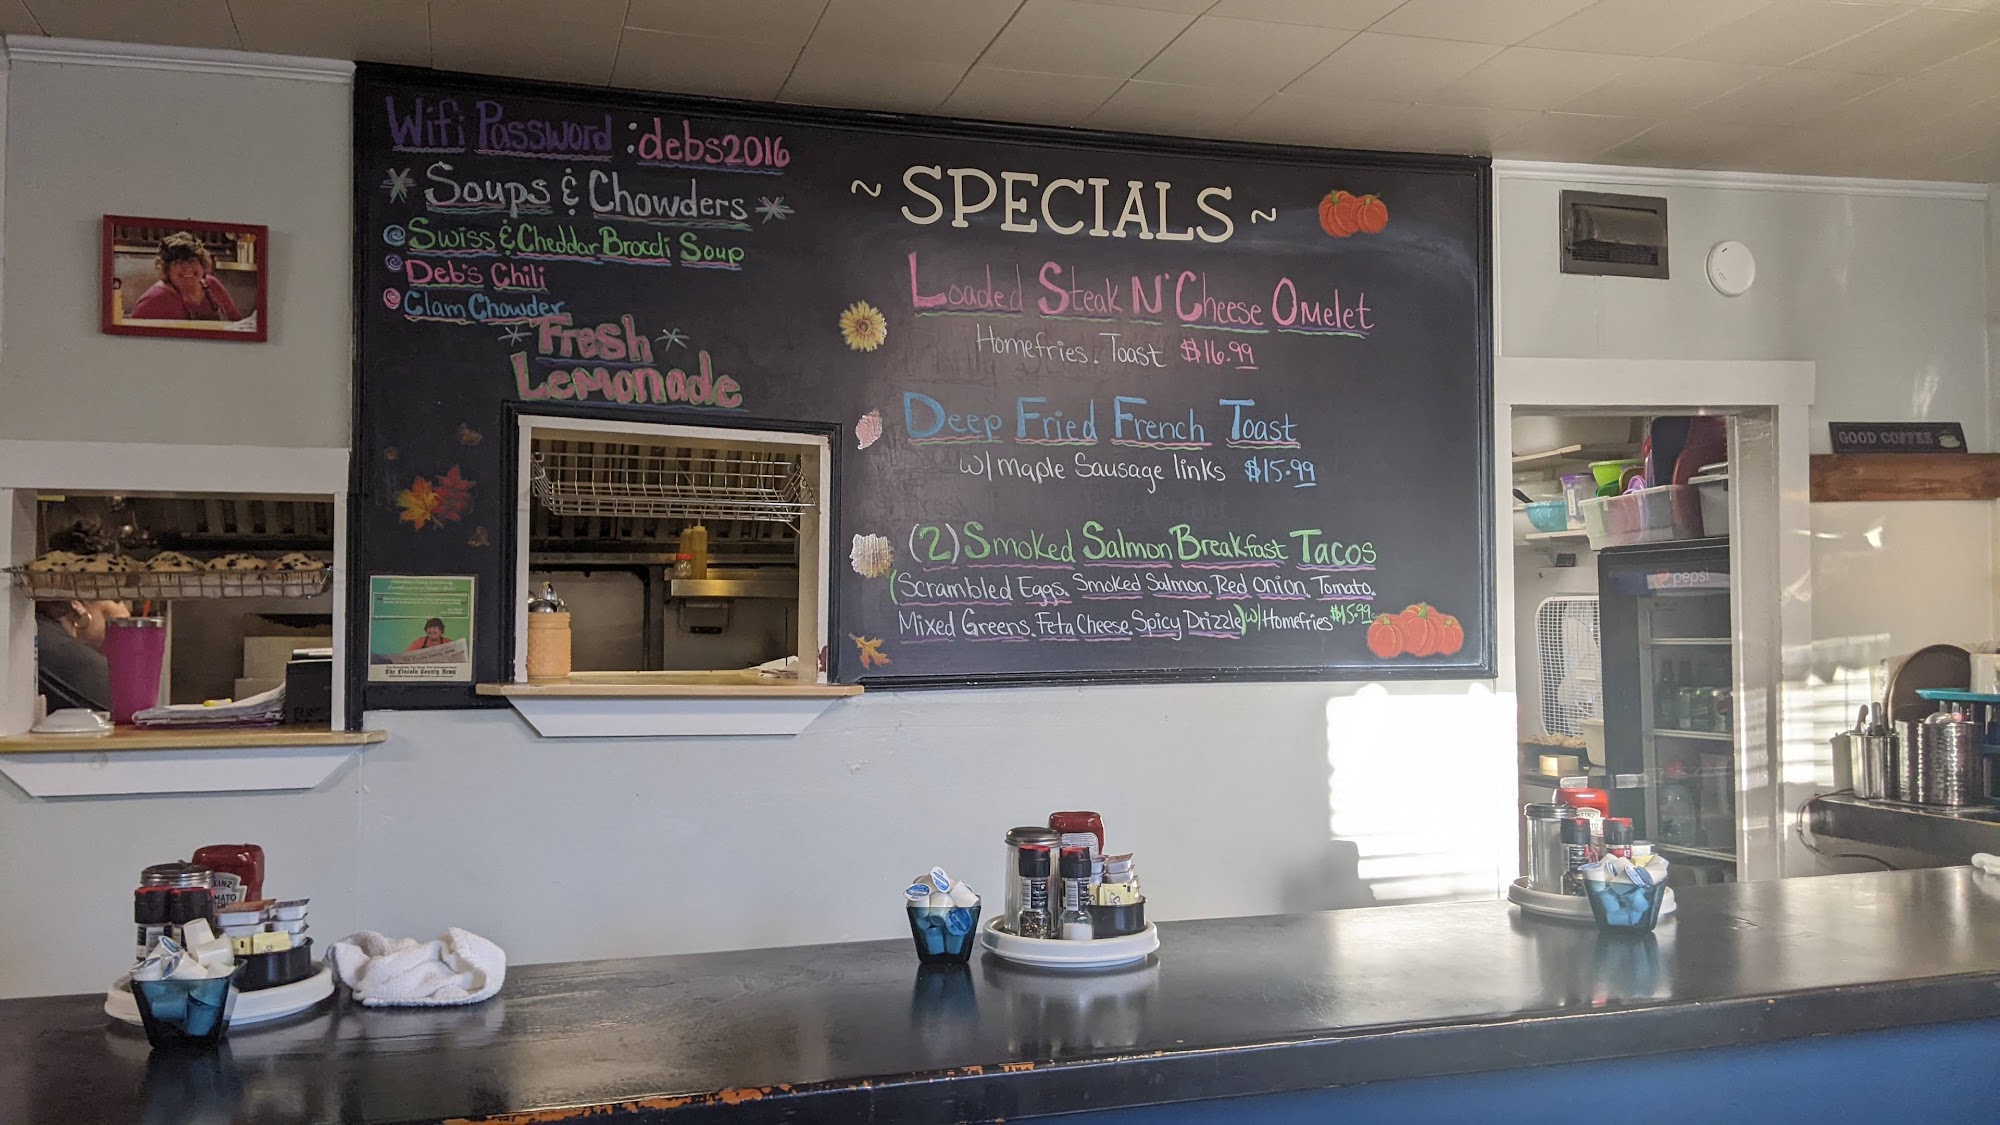 Wifi Password : debs2016
Soups & Chowders
Swiss & Cheddar Broccli Soup
Deb's Chili
Clam Chowder
Fresh
Lemonade
~ SPECIALS ~
Loaded Steak N' Cheese Omelet
Homefries. Toast $16.99
Deep Fried French Toast
w/ Maple Sausage links $15.99
(2) Smoked Salmon Breakfast Tacos
(Scrambled Eggs. Smoked Salmon. Red Onion. Tomato.
Mixed Greens. Feta Cheese. Spicy Drizzle) w/ Homefries $15.99
The Lincoln County News
GOOD COFFEE
pepsi
HEINZ